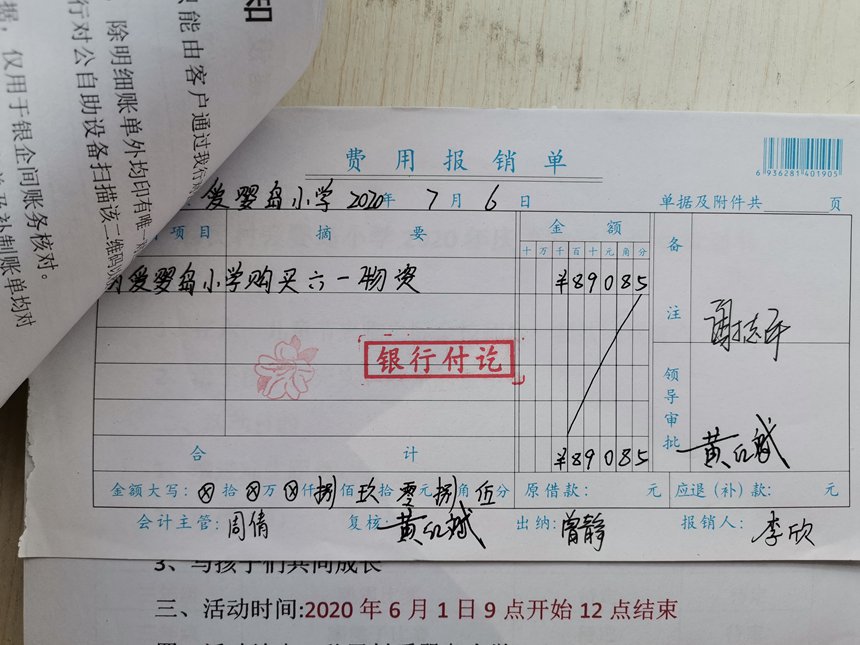 知
只能由客户通过我行
除明细账单外均印有唯一
行对公自助设备扫描该二维码
据，仅用于银企间账务核对。
及补制账单均对
费用报销单
6 936281 401905
爱婴岛小学 2020年 7月 6日 单据及附件共 页
项目 摘要 金额 备注
十万千百十元角分
爱婴岛小学购买六一物资 ¥89085
银行付讫
领导审批 黄
合计 ¥89085
金额大写：ⓧ拾ⓧ万ⓧ仟捌佰玖拾零元捌角伍分 原借款： 元 应退（补）款： 元
会计主管：周倩 复核：黄 出纳：曾静 报销人：李欣
3、与孩子们共同成长
三、活动时间:2020年6月1日9点开始12点结束